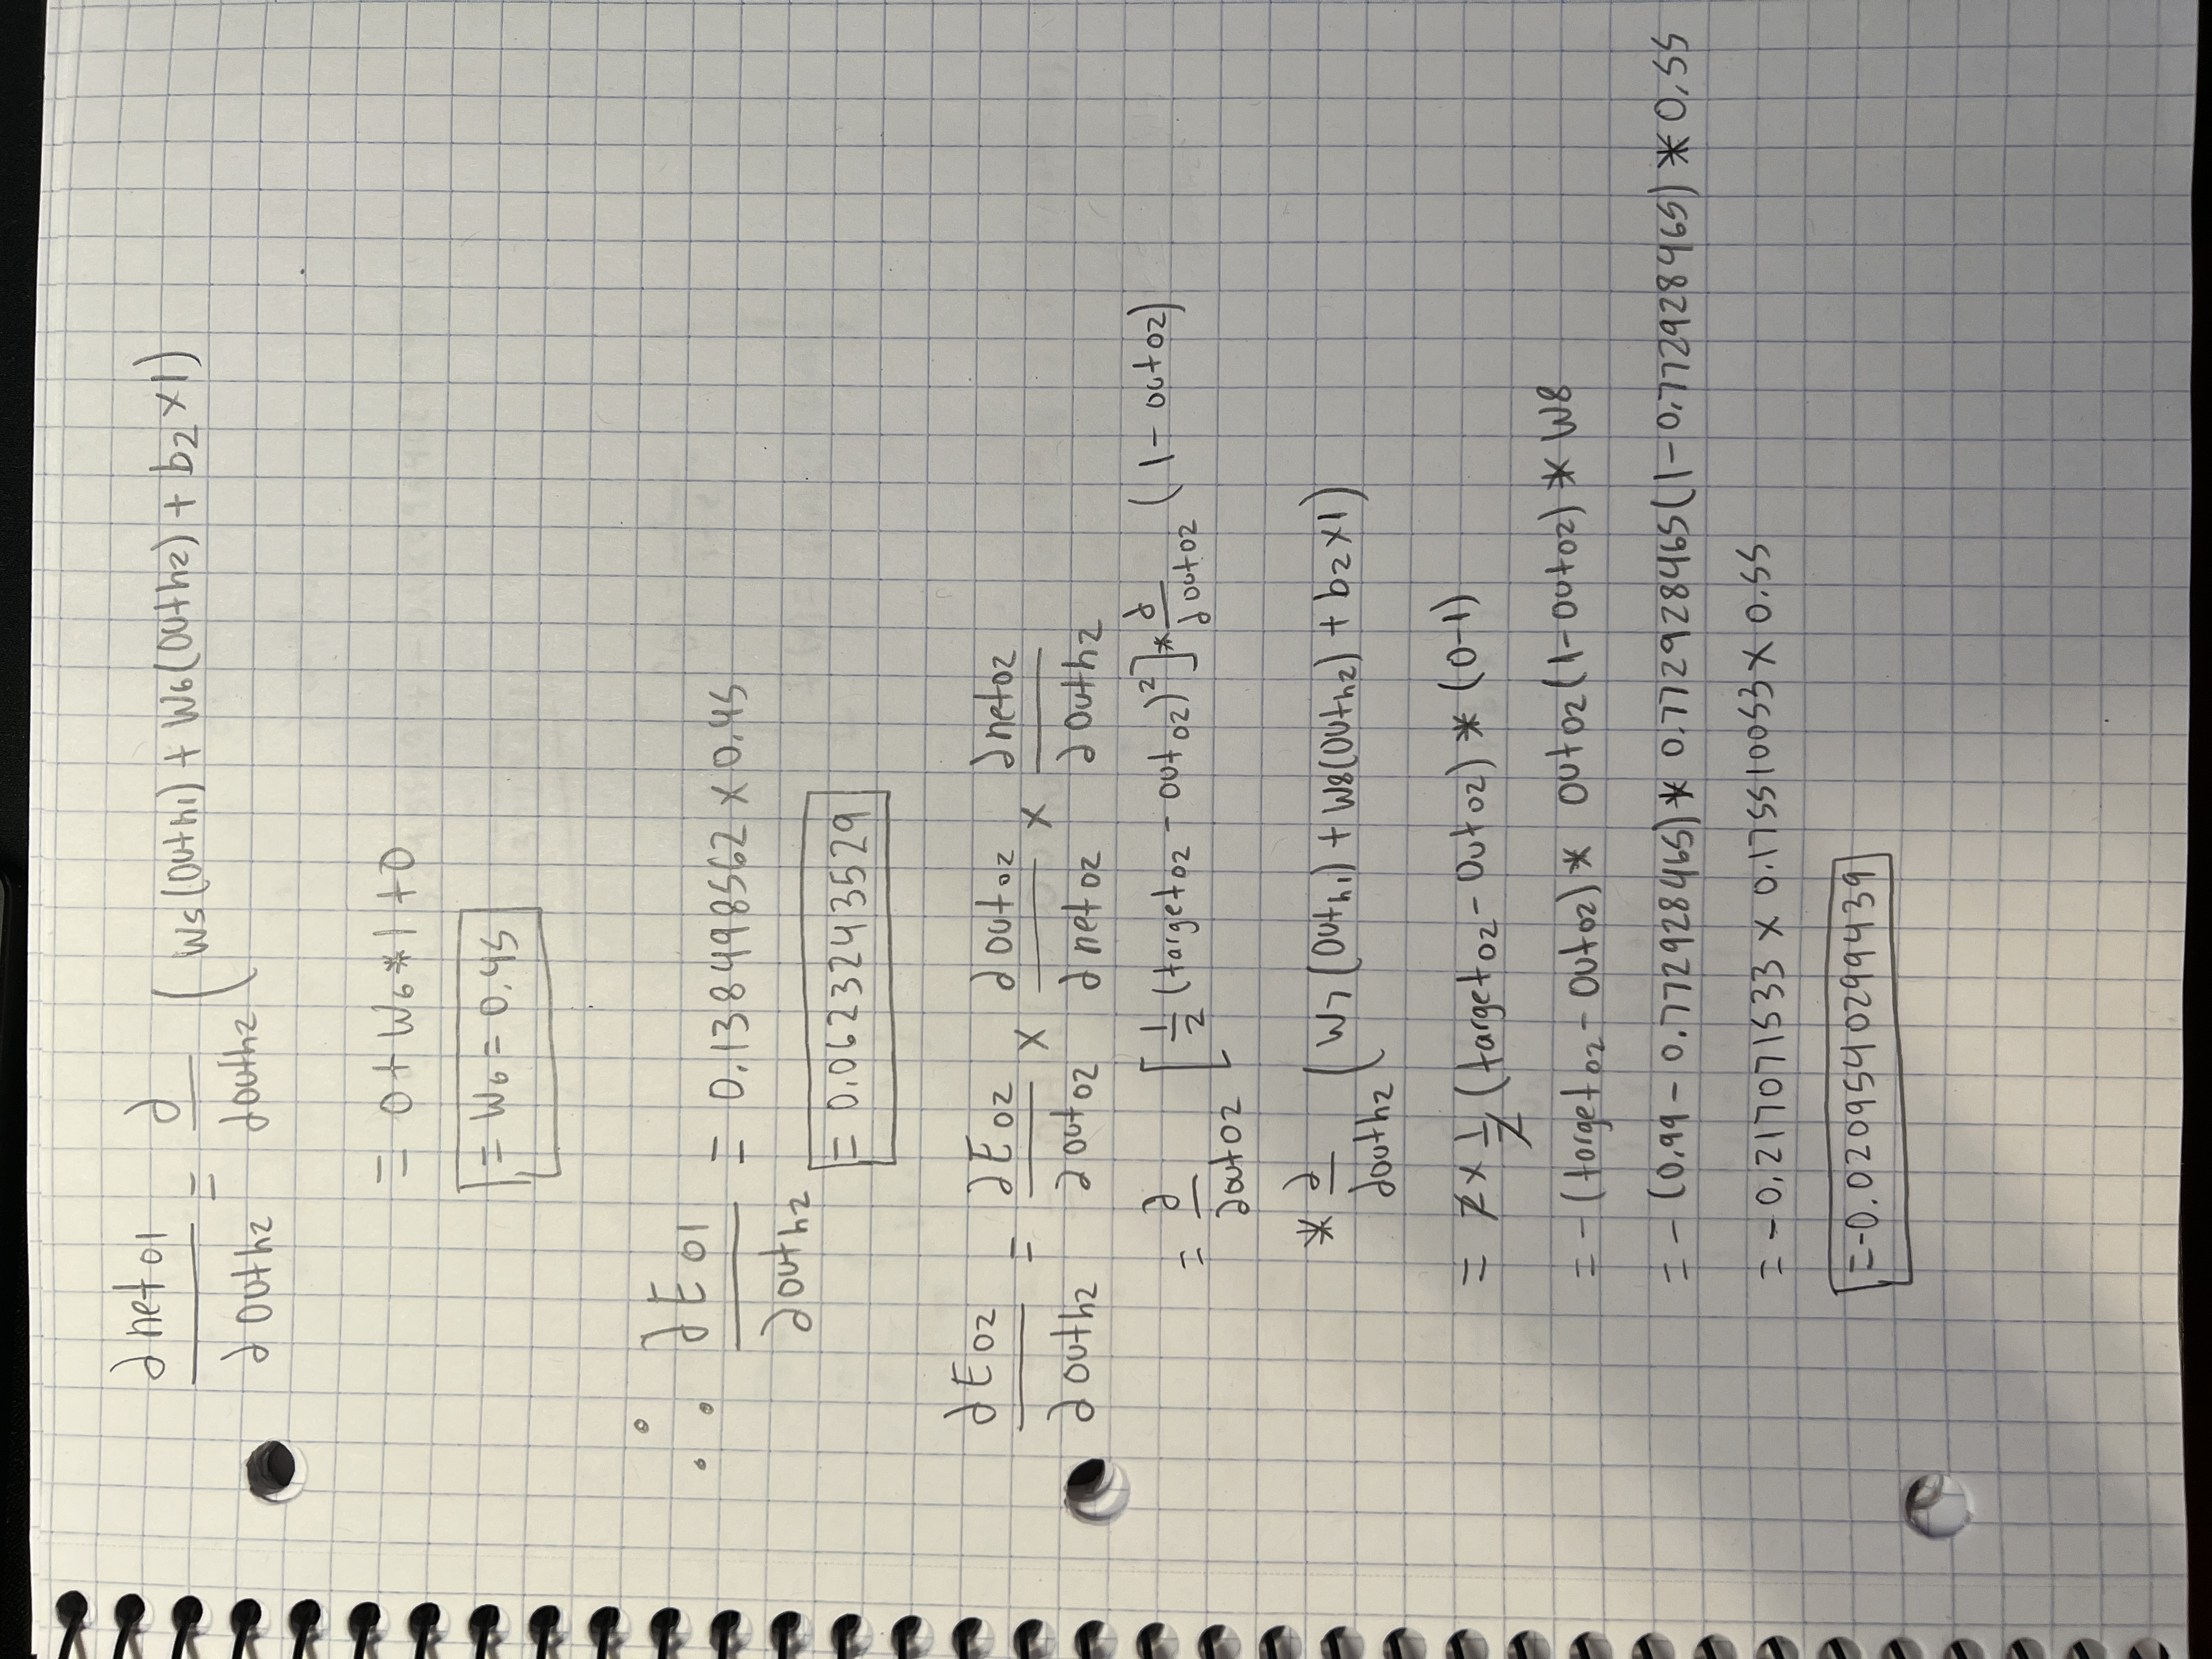 ∂net o1 / ∂out h2 = ∂ / ∂out h2 ( W5(Out h1) + W6(Out h2) + b2 × 1)
= 0 + W6 * 1 + 0
= W6 = 0.45
∴ ∂E o1 / ∂out h2 = 0.138498562 × 0.45
= 0.0623243529
∂E o2 / ∂out h2 = ∂E o2 / ∂out o2 × ∂out o2 / ∂net o2 × ∂net o2 / ∂out h2
= ∂ / ∂out o2 [ 1/2 (target o2 - out o2)² ] * ∂ / ∂out o2 ( 1 - out o2)
* ∂ / ∂out h2 ( W7(Out h1) + W8(Out h2) + b2 × 1)
= 2 × 1/2 (target o2 - Out o2) * (0-1)
= -(target o2 - Out o2) * Out o2 (1 - Out o2) * W8
= -(0.99 - 0.772928465) * 0.772928465(1 - 0.772928465) * 0.55
= -0.217071533 × 0.175510053 × 0.55
= -0.0209540299439